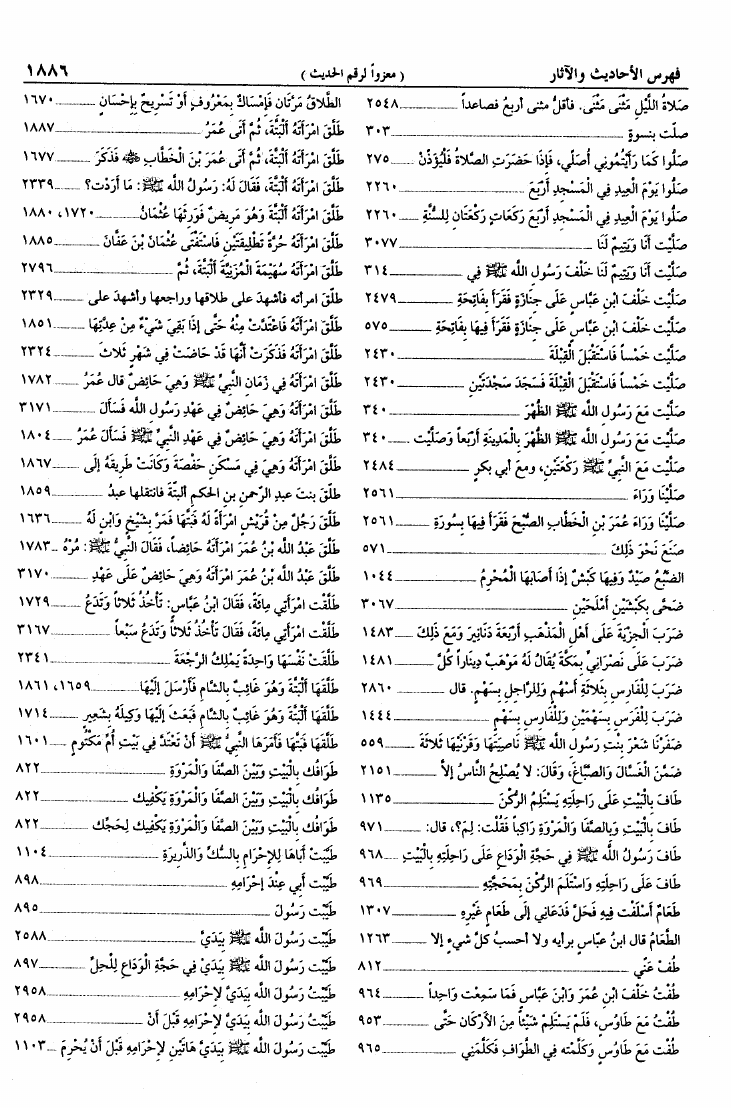 فهرس الأحاديث والآثار (معزواً لرقم الحديث) ١٨٨٦
صَلاةُ اللَّيْلِ مَثْنَى مَثْنَى. فأقلُ مثنى أربعُ فصاعداً ٢٥٤٨
صلّت بنسوةٍ ٣٠٣
صَلُّوا كَمَا رَأَيْتُمُونِي أُصَلِّي، فَإِذَا حَضَرَتِ الصَّلاةُ فَلْيُؤَذِّنْ ٢٧٥
صَلُّوا يَوْمَ الْعِيدِ فِي الْمَسْجِدِ أَرْبَعَ ٢٢٦٠
صَلُّوا يَوْمَ الْعِيدِ فِي الْمَسْجِدِ أَرْبَعَ رَكَعَاتٍ رَكْعَتَانِ لِلسُّنَّةِ ٢٢٦٠
صَلَّيْت أَنَا وَيَتِيمٌ لَنَا ٣٠٧٧
صَلَّيْت أَنَا وَيَتِيمٌ لَنَا خَلْفَ رَسُولِ اللَّه ﷺ فِي ٣١٤
صَلَّيْت خَلْفَ ابْنِ عَبَّاسٍ عَلَى جِنَازَةٍ فَقَرَأَ بِفَاتِحَةِ ٢٤٧٩
صَلَّيْت خَلْفَ ابْنِ عَبَّاسٍ عَلَى جِنَازَةٍ فَقَرَأَ فِيهَا بِفَاتِحَةِ ٥٧٥
صَلَّيْت خَمْساً فَاسْتَقْبَلَ الْقِبْلَةَ ٢٤٣٠
صَلَّيْت خَمْساً فَاسْتَقْبَلَ الْقِبْلَةَ فَسَجَدَ سَجْدَتَيْنِ ٢٤٣٠
صَلَّيْت مَعَ رَسُولِ اللَّه ﷺ الظُّهْرَ ٣٤٠
صَلَّيْت مَعَ رَسُولِ اللَّه ﷺ الظُّهْرَ بِالْمَدِينَةِ أَرْبَعاً وَصَلَّيْت ٣٤٠
صَلَّيْت مَعَ النَّبِيِّ ﷺ رَكْعَتَيْنِ، ومَعَ أبي بكرٍ ٢٤٨٤
صَلَّيْنَا وَرَاءَ ٢٥٦١
صَلَّيْنَا وَرَاءَ عُمَرَ بْنِ الْخَطَّابِ الصُّبْحَ فَقَرَأَ فِيهَا بِسُورَةِ ٢٥٦١
صَنَعَ نَحْوَ ذَلِكَ ٥٧١
الضَّبُعُ صَيْدٌ وَفِيهَا كَبْشٌ إِذَا أَصَابَهَا الْمُحْرِمُ ١٠٤٤
ضَحَّى بِكَبْشَيْنِ أَمْلَحَيْنِ ٣٠٦٧
ضَرَبَ الْجِزْيَةَ عَلَى أَهْلِ الْمَذْهَبِ أَرْبَعَةَ دَنَانِيرَ وَمَعَ ذَلِكَ ١٤٨٣
ضَرَبَ عَلَى نَصْرَانِيٍّ بِمَكَّةَ يُقَالُ لَهُ مَوْهَبٌ دِينَاراً كُلَّ ١٤٨١
ضَرَبَ لِلْفَارِسِ بِثَلاثَةِ أَسْهُمٍ وَلِلرَّاجِلِ بِسَهْمٍ. قال ٢٨٦٠
ضَرَبَ لِلْفَرَسِ بِسَهْمَيْنِ وَلِلْفَارِسِ بِسَهْمٍ ١٤٤٤
ضَفَرْنَا شَعْرَ بِنْتِ رَسُولِ اللَّه ﷺ نَاصِيَتَهَا وَقَرْنَيْهَا ثَلاثَةَ ٥٥٩
ضَمَّنَ الْغَسَّالَ وَالصَّبَّاغَ، وَقَالَ: لا يُصْلِحُ النَّاسُ إلاَّ ٢١٥١
طَافَ بِالْبَيْتِ عَلَى رَاحِلَتِهِ يَسْتَلِمُ الرُّكْنَ ١١٣٥
طَافَ بِالْبَيْتِ وَبِالصَّفَا وَالْمَرْوَةِ رَاكِباً فَقُلْت: لِمَ؟، قال: ٩٧١
طَافَ رَسُولُ اللَّه ﷺ فِي حَجَّةِ الْوَدَاعِ عَلَى رَاحِلَتِهِ بِالْبَيْتِ ٩٦٨
طَافَ عَلَى رَاحِلَتِهِ وَاسْتَلَمَ الرُّكْنَ بِمَحْجَنِهِ ٩٦٩
طَعَامٌ أَسْلَفْت فِيهِ فَحَلَّ فَدَعَانِي إِلَى طَعَامٍ غَيْرِهِ ١٣٠٧
الطَّعَامُ قال ابنُ عبّاس برأيه ولا أحسبُ كلَّ شيءٍ إلا ١٢٦٣
طُفْ عَنِّي ٨١٢
طُفْتُ خَلْفَ ابْنِ عُمَرَ وَابْنِ عَبَّاسٍ فَمَا سَمِعْت وَاحِداً ٩٦٤
طُفْتُ مَعَ طَاوُسٍ، فَلَمْ يَسْتَلِمْ شَيْئاً مِنَ الأَرْكَانِ حَتَّى ٩٥٣
طُفْت مَعَ طَاوُسٍ وَكَلَّمْته فِي الطَّوَافِ فَكَلَّمَنِي ٩٦٥
الطَّلاقُ مَرَّتَانِ فَإِمْسَاكٌ بِمَعْرُوفٍ أَوْ تَسْرِيحٌ بِإِحْسَانٍ ١٦٧٠
طَلَّقَ امْرَأَتَهُ أَلْبَتَّةَ، ثُمَّ أَتَى عُمَرَ ١٨٨٧
طَلَّقَ امْرَأَتَهُ أَلْبَتَّةَ، ثُمَّ أَتَى عُمَرَ بْنَ الْخَطَّابِ ﷺ فَذَكَرَ ١٦٧٧
طَلَّقَ امْرَأَتَهُ أَلْبَتَّةَ، فَقَالَ لَهُ: رَسُولُ اللَّه ﷺ: مَا أَرَدْت؟ ٢٣٣٩
طَلَّقَ امْرَأَتَهُ أَلْبَتَّةَ وَهُوَ مَرِيضٌ فَوَرِثَهَا عُثْمَانُ ١٧٢٠، ١٨٨٠
طَلَّقَ امْرَأَتَهُ حُرَّةً تَطْلِيقَتَيْنِ فَاسْتَفْتَى عُثْمَانَ بْنَ عَفَّانَ ١٨٨٥
طَلَّقَ امْرَأَتَهُ سُهَيْمَةَ الْمُزَنِيَّةَ أَلْبَتَّةَ، ثُمَّ ٢٧٩٦
طلّق امرأته فأشهدَ على طلاقها وراجعها وأشهدَ على ٢٣٢٩
طَلَّقَ امْرَأَتَهُ فَاعْتَدَّتْ مِنْهُ حَتَّى إِذَا بَقِيَ شَيْءٌ مِنْ عِدَّتِهَا ١٨٥١
طَلَّقَ امْرَأَتَهُ فَذَكَرَتْ أَنَّهَا قَدْ حَاضَتْ فِي شَهْرٍ ثَلاثَ ٢٣٢٤
طَلَّقَ امْرَأَتَهُ فِي زَمَانِ النَّبِيِّ ﷺ وَهِيَ حَائِضٌ قال عُمَرُ ١٧٨٢
طَلَّقَ امْرَأَتَهُ وَهِيَ حَائِضٌ فِي عَهْدِ رَسُولِ اللَّه فَسَأَلَ ٣١٧١
طَلَّقَ امْرَأَتَهُ وَهِيَ حَائِضٌ فِي عَهْدِ النَّبِيِّ ﷺ فَسَأَلَ عُمَرُ ١٨٠٤
طَلَّقَ امْرَأَتَهُ وَهِيَ فِي مَسْكَنِ حَفْصَةَ وَكَانَتْ طَرِيقُهُ إِلَى ١٨٦٧
طلّقَ بنتَ عبدِ الرّحمنِ بنِ الحكمِ ألبتّةَ فانتقلها عبدُ ١٨٥٩
طَلَّقَ رَجُلٌ مِنْ قُرَيْشٍ امْرَأَةً لَهُ فَبَتَّهَا فَمَرَّ بِشَيْخٍ وَابْنٍ لَهُ ١٦٣٦
طَلَّقَ عَبْدُ اللَّه بْنُ عُمَرَ امْرَأَتَهُ حَائِضاً، فَقَالَ النَّبِيُّ ﷺ: مُرْهُ ١٧٨٣
طَلَّقَ عَبْدُ اللَّه بْنُ عُمَرَ امْرَأَتَهُ وَهِيَ حَائِضٌ عَلَى عَهْدِ ٣١٧٠
طَلَّقْت امْرَأَتِي مِائَةً، فَقَالَ ابْنُ عَبَّاسٍ: تَأْخُذُ ثَلاثاً وَتَدَعُ ١٧٢٩
طَلَّقْت امْرَأَتِي مِائَةً، فَقَالَ تَأْخُذُ ثَلاثاً وَتَدَعُ سَبْعاً ٣١٦٧
طَلَّقَتْ نَفْسَهَا وَاحِدَةً يَمْلِكُ الرَّجْعَةَ ٢٣٤١
طَلَّقَهَا أَلْبَتَّةَ وَهُوَ غَائِبٌ بِالشَّامِ فَأَرْسَلَ إِلَيْهَا ١٦٥٩، ١٨٦١
طَلَّقَهَا أَلْبَتَّةَ وَهُوَ غَائِبٌ بِالشَّامِ فَبَعَثَ إِلَيْهَا وَكِيلُهُ بِشَعِيرٍ ١٧١٤
طَلَّقَهَا فَبَتَّهَا فَأَمَرَهَا النَّبِيُّ ﷺ أَنْ تَعْتَدَّ فِي بَيْتِ أُمِّ مَكْتُومٍ ١٦٠١
طَوَافُك بِالْبَيْتِ وَبَيْنَ الصَّفَا وَالْمَرْوَةِ ٨٢٢
طَوَافُك بِالْبَيْتِ وَبَيْنَ الصَّفَا وَالْمَرْوَةِ يَكْفِيك ٨٢٢
طَوَافُك بِالْبَيْتِ وَبَيْنَ الصَّفَا وَالْمَرْوَةِ يَكْفِيك لِحَجِّك ٨٢٢
طَيَّبْت أَبَاهَا لِلإِحْرَامِ بِالسُّكِّ وَالذَّرِيرَةِ ١١٠٤
طَيَّبْت أَبِي عِنْدَ إِحْرَامِهِ ٨٩٨
طَيَّبْت رَسُولَ ٨٩٥
طَيَّبْت رَسُولَ اللَّه ﷺ بِيَدَيَّ ٢٥٨٨
طَيَّبْت رَسُولَ اللَّه ﷺ بِيَدَيَّ فِي حَجَّةِ الْوَدَاعِ لِلْحِلِّ ٨٩٧
طَيَّبْتُ رَسُولَ اللَّه ﷺ بِيَدَيَّ لإِحْرَامِهِ ٢٩٥٨
طَيَّبْت رَسُولَ اللَّه ﷺ بِيَدَيَّ لإِحْرَامِهِ قَبْلَ أَنْ ٢٩٥٨
طَيَّبْت رَسُولَ اللَّه ﷺ بِيَدَيَّ هَاتَيْنِ لإِحْرَامِهِ قَبْلَ أَنْ يُحْرِمَ ١١٠٣